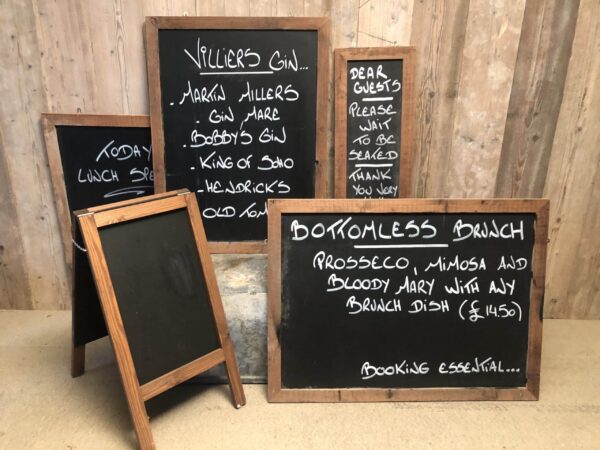 VILLIERS GIN...
. MARTIN MILLERS
. GIN MARE
. BOBBY'S GIN
. KING OF SOHO
. HENDRICKS
OLD TOM
DEAR
GUESTS
PLEASE
WAIT
TO BE
SEATED
THANK
YOU VERY
TODAY
LUNCH SPE
BOTTOMLESS BRUNCH
PROSSECO, MIMOSA AND
BLOODY MARY WITH ANY
BRUNCH DISH (£14.50)
BOOKING ESSENTIAL...